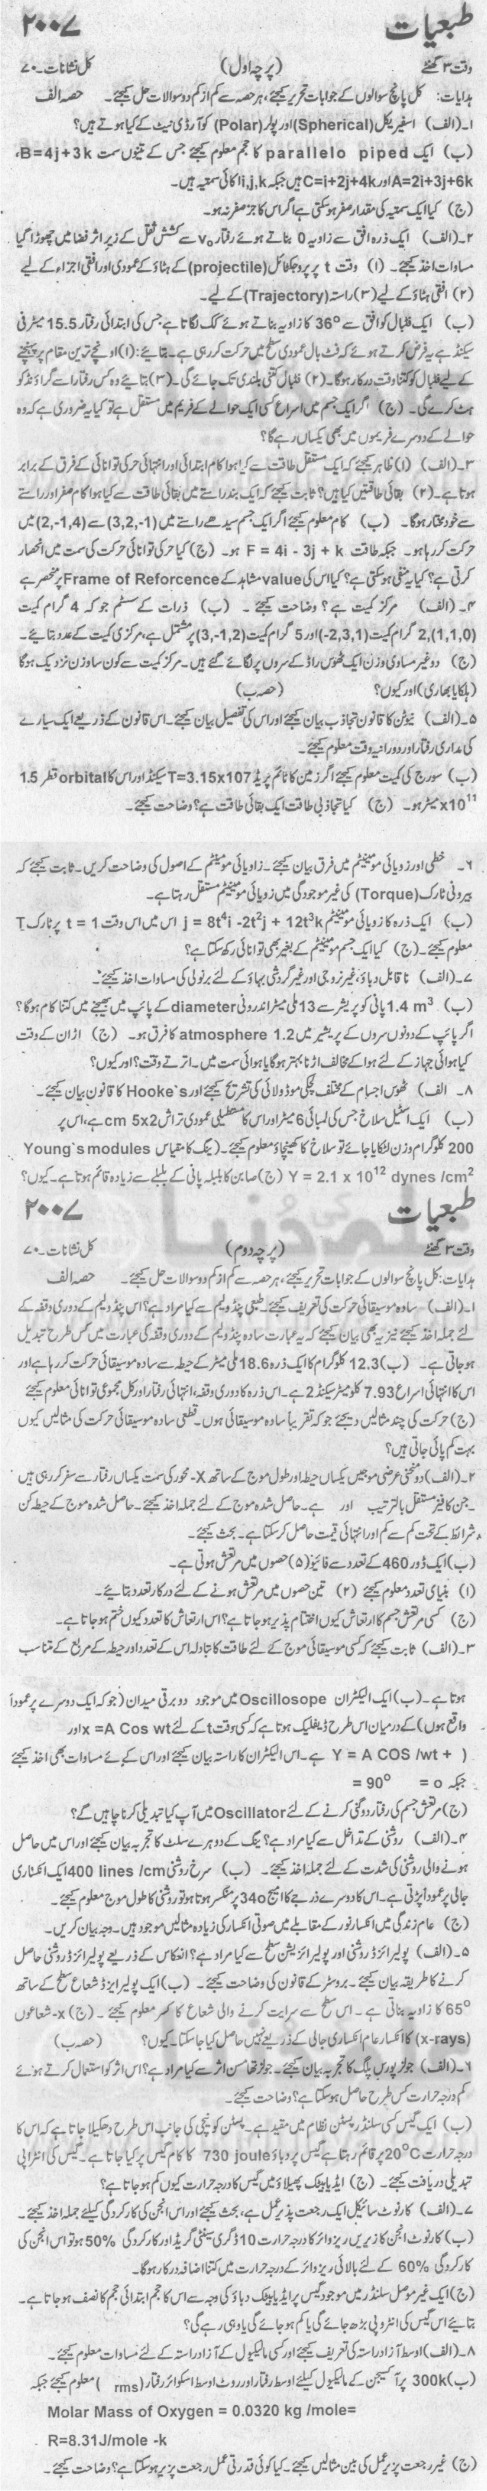 طبعیات ۲۰۰۷
وقت ۳ گھنٹے (پرچہ اول) کل نشانات۔ ۷۰
ہدایات: کل پانچ سوالوں کے جوابات تحریر کیجئے، ہر حصہ سے کم از کم دو سوالات حل کیجئے۔ حصہ الف
۱۔ (الف) اسفیریکل (Spherical) اور پولر (Polar) کوآرڈی نیٹ کے کیا ہوتے ہیں؟
(ب) ایک parallelo piped کا حجم معلوم کیجئے جس کے تینوں سمت B=4j+3k،
A=2i+3j+6k اور C=i+2j+4k ہیں جبکہ i,j,k اکائی سمتیہ ہیں۔
(ج) کیا ایک سمتیہ کی مقدار صفر ہو سکتی ہے اگر اس کا جز صفر نہ ہو۔
۲۔ (الف) ایک ذرہ افق سے زاویہ 0 بناتے ہوئے رفتار v₀ سے کشش ثقل کے زیر اثر فضا میں چھوڑا گیا
مساوات اخذ کیجئے۔ (۱) وقت t پر پروجکٹائل (projectile) کے ہٹاؤ کے عمودی اور افقی اجزاء کے لیے
(۲) افقی ہٹاؤ کے لیے (۳) راستہ (Trajectory) کے لیے۔
(ب) ایک فٹبال کو افق سے 36° کا زاویہ بناتے ہوئے کک لگاتا ہے جس کی ابتدائی رفتار 15.5 میٹر فی
سیکنڈ ہے یہ فرض کرتے ہوئے کہ فٹ بال عمودی سطح میں حرکت کر رہی ہے۔ بتایئے: (۱) اونچے ترین مقام پر پہنچنے
کے لیے فٹبال کو کتنا وقت درکار ہوگا۔ (۲) فٹبال کتنی بلندی تک جائے گی۔ (۳) بتایئے وہ کس رفتار سے گراؤنڈ کو
ہٹ کرے گی۔ (ج) اگر ایک جسم میں اسراع کسی ایک حوالے کے فریم میں مستقل ہے تو کیا یہ ضروری ہے کہ وہ
حوالے کے دوسرے فریموں میں بھی یکساں رہے گا؟
۳۔ (الف) (۱) ظاہر کیجئے کہ ایک مستقل طاقت سے کیا ہوا کام ابتدائی اور انتہائی حرکی توانائی کے فرق کے برابر
ہوتا ہے۔ (۲) بقائی طاقتیں کیا ہیں؟ ثابت کیجئے کہ ایک بند راستے میں بقائی طاقت سے کیا ہوا کام صفر اور راستے
سے خود مختار ہوگا۔ (ب) کام معلوم کیجئے اگر ایک جسم سیدھے راستے میں (3,2,-1) سے (2,-1,4) میں
حرکت کر رہا ہو۔ جبکہ طاقت F = 4i - 3j + k ہو۔ (ج) کیا حرکی توانائی حرکت کی سمت میں انحصار
کرتی ہے؟ کیا یہ منفی ہو سکتی ہے؟ کیا اس کی value مشاہد کے Frame of Reforcence پر منحصر ہے
۴۔ (الف) مرکز کمیت ہے؟ وضاحت کیجئے۔ (ب) ذرات کے سسٹم جو کہ 4 گرام کمیت
(1,1,0)، 2 گرام کمیت (-2,3,1) اور 5 گرام کمیت (3,-1,2) پر مشتمل ہے، مرکزی کمیت کے عدد بتایئے۔
(ج) دو غیر مساوی وزن ایک ٹھوس راڈ کے سروں پر لگائے گئے ہیں۔ مرکز کمیت سے کون سا وزن نزدیک ہوگا
(ہلکا یا بھاری) اور کیوں؟ (حصہ ب)
۵۔ (الف) نیوٹن کا قانون تجاذب بیان کیجئے اور اس کی تفصیل بیان کیجئے۔ اس قانون کے ذریعے ایک سیارے
کی مداری رفتار اور دورانیہ وقت معلوم کیجئے۔
(ب) سورج کی کمیت معلوم کیجئے اگر زمین کا ٹائم پریڈ T=3.15x107 سیکنڈ اور اس کا orbital قطر 1.5
x10¹¹ میٹر ہو۔ (ج) کیا تجاذبی طاقت ایک بقائی طاقت ہے؟ وضاحت کیجئے۔
۶۔ خطی اور زویائی مومینٹم میں فرق بیان کیجئے۔ زاویائی مومینٹم کے اصول کی وضاحت کریں۔ ثابت کیجئے کہ
بیرونی ٹارک (Torque) کی غیر موجودگی میں زویائی مومینٹم مستقل رہتا ہے۔
(ب) ایک ذرہ کا زویائی مومینٹم j = 8t⁴i -2t²j + 12t³k اس میں اس وقت t = 1 پر ٹارک T
معلوم کیجئے۔ (ج) کیا ایک جسم مومینٹم کے بغیر بھی توانائی رکھ سکتا ہے؟
۷۔ (الف) نا قابل دباؤ، غیر زوجی اور غیر گردشی بہاؤ کے لئے برنولی کی مساوات اخذ کیجئے۔
(ب) 1.4 m³ پانی کو پریشر سے 13 ملی میٹر اندرونی diameter کے پائپ میں بھیجنے میں کتنا کام ہوگا؟
اگر پائپ کے دونوں سروں کے پریشر میں 1.2 atmosphere کا فرق ہو۔ (ج) اڑان کے وقت
کیا ہوائی جہاز کے لئے ہوا کے مخالف اڑنا بہتر ہوگا یا ہوائی سمت میں۔ اترتے وقت؟ اور کیوں؟
۸۔ الف) ٹھوس اجسام کے مختلف لچکی موڈولائی کی تشریح کیجئے اور Hooke`s کا قانون بیان کیجئے۔
(ب) ایک اسٹیل سلاخ جس کی لمبائی 6 میٹر اور اس کا مستطیلی عمودی تراش 5x2 cm ہے، اس پر
200 کلوگرام وزن لٹکایا جائے تو سلاخ کا کھنچاؤ معلوم کیجئے۔ (ینگ کا مقیاس Young`s modules
Y = 2.1 x 10¹² dynes /cm² (ج) صابن کا بلبلہ پانی کے بلبلے سے زیادہ قائم ہوتا ہے۔ کیوں؟
طبعیات ۲۰۰۷
وقت ۳ گھنٹے (پرچہ دوم) کل نشانات۔ ۷۰
ہدایات: کل پانچ سوالوں کے جوابات تحریر کیجئے، ہر حصہ سے کم از کم دو سوالات حل کیجئے۔ حصہ الف
۱۔ (الف) سادہ موسیقائی حرکت کی تعریف کیجئے۔ طبعی پنڈولیم سے کیا مراد ہے؟ اس پنڈولیم کے دوری وقفہ کے
لئے جملہ اخذ کیجئے نیز یہ بھی بیان کیجئے کہ یہ عبارت سادہ پنڈولیم کے دوری وقفہ کی عبارت میں کس طرح تبدیل
ہو جاتی ہے۔ (ب) 12.3 کلوگرام کا ایک ذرہ 18.6 ملی میٹر کے حیطہ سے سادہ موسیقائی حرکت کر رہا ہے اور
اس کا انتہائی اسراع 7.93 کلو میٹر سیکنڈ 2 ہے۔ اس ذرہ کا دوری وقفہ، انتہائی رفتار اور کل مجموعی توانائی معلوم کیجئے
(ج) حرکت کی چند مثالیں دیجئے جو کہ تقریباً سادہ موسیقائی ہوں۔ قطعی سادہ موسیقائی حرکت کی مثالیں کیوں
بہت کم پائی جاتی ہیں؟
۲۔ (الف) دو منحنی عرضی موجیں یکساں حیطہ اور طول موج کے ساتھ X- محور کی سمت یکساں رفتار سے سفر کر رہی ہیں
۔ جن کا فیز مستقل بالترتیب اور ہے۔ حاصل شدہ موج کے لئے جملہ اخذ کیجئے۔ حاصل شدہ موج کے حیطہ کن
شرائط کے تحت کم سے کم اور انتہائی قیمت حاصل کر سکتا ہے۔ بحث کیجئے۔
(ب) ایک ڈور 460 کے تعدد سے فائیو (۵) حصوں میں مرتعش ہوتی ہے۔
(۱) بنیادی تعدد معلوم کیجئے (۲) تین حصوں میں مرتعش ہونے کے لئے درکار تعدد بتایئے۔
(ج) کسی مرتعش جسم کا ارتعاش کیوں اختتام پذیر ہو جاتا ہے؟ اس ارتعاش کا تعدد کیوں ختم ہو جاتا ہے؟
۳۔ (الف) ثابت کیجئے کہ کسی موسیقائی موج کے لئے طاقت کا تبادلہ اس کے تعدد اور حیطہ کے مربع کے متناسب
ہوتا ہے۔ (ب) ایک الیکٹران Oscillosope میں موجود دو برقی میدان (جو کہ ایک دوسرے پر عموداً
واقع ہوں) کے درمیان اس طرح ڈیفلیکٹ ہوتا ہے کہ کسی وقت t کے لئے x =A Cos wt اور
Y = A COS /wt + ) ہے۔ اس الیکٹران کا راستہ بیان کیجئے اور اس کے لئے مساوات بھی اخذ کیجئے
جبکہ = o = 90⁰
(ج) مرتعش جسم کی رفتار دوگنی کرنے کے لئے Oscillator میں آپ کیا تبدیلی کرنا چاہیں گے؟
۴۔ (الف) روشنی کے تداخل سے کیا مراد ہے؟ ینگ کے دوہرے سلٹ کا تجربہ بیان کیجئے اور اس میں حاصل
ہونے والی روشنی کی شدت کے لئے جملہ اخذ کیجئے۔ (ب) سرخ روشنی 400 lines /cm ایک انکساری
جالی پر عموداً پڑتی ہے۔ اس کا دوسرے درجے کا امیج 34o پر منکسر ہوتا ہو تو روشنی کا طول موج معلوم کیجئے۔
(ج) عام زندگی میں انکسار نور کے مقابلے میں صوتی انکسار کی زیادہ مثالیں موجود ہیں۔ وجہ بیان کریں۔
۵۔ (الف) پولیرائزڈ روشنی اور پولیرائزیشن سطح سے کیا مراد ہے؟ انعکاس کے ذریعے پولیرائزڈ روشنی حاصل
کرنے کا طریقہ بیان کیجئے۔ بروسٹر کے قانون کی وضاحت کیجئے۔ (ب) ایک پولیرائیزڈ شعاع سطح کے ساتھ
65⁰ کا زاویہ بناتی ہے۔ اس سطح سے سرایت کرنے والی شعاع کا کسر معلوم کیجئے۔ (ج) x- شعاعوں
(x-rays) کا انکسار عام انکساری جالی کے ذریعے نہیں حاصل کیا جا سکتا۔ کیوں؟ (حصہ ب)
۶۔ (الف) جولز پورس پلگ کا تجربہ بیان کیجئے۔ جولز تھامسن اثر سے کیا مراد ہے؟ اس اثر کو استعمال کرتے ہوئے
کم درجہ حرارت کس طرح حاصل ہو سکتا ہے؟ وضاحت کیجئے۔
(ب) ایک گیس کسی سلنڈر پسٹن نظام میں مقید ہے۔ پسٹن کو نیچے کی جانب اس طرح دھکیلا جاتا ہے کہ اس کا
درجہ حرارت 20⁰C پر قائم رہتا ہے گیس پر دباؤ 730 joule کا کام گیس پر کیا جاتا ہے۔ گیس کی انٹراپی
تبدیلی دریافت کیجئے۔ (ج) ایڈیابیٹک پھیلاؤ میں گیس کا درجہ حرارت کیوں کم ہو جاتا ہے؟
۷۔ (الف) کارنوٹ سائیکل ایک رجعت پذیر عمل ہے، بحث کیجئے اور اس انجن کی کارکردگی کیلئے جملہ اخذ کیجئے۔
(ب) کارنوٹ انجن کا زیریں ریزوائر کا درجہ حرارت 10 ڈگری سینٹی گریڈ اور کارکردگی 50% ہو تو اس انجن کی
کارکردگی 60% کے لئے بالائی ریزوائر کے درجہ حرارت میں کتنا اضافہ درکار ہوگا۔
(ج) ایک غیر موصل سلنڈر میں موجود گیس پر ایڈیابیٹک دباؤ کی وجہ سے اس کا حجم ابتدائی حجم کا نصف ہو جاتا ہے۔
بتائیے اس گیس کی انٹروپی بڑھ جائے گی یا کم ہو جائے گی یا وہی رہے گی؟
۸۔ (الف) اوسط آزاد راستہ کی تعریف کیجئے اور کسی مالیکیول کے آزاد راستہ کے لئے مساوات معلوم کیجئے۔
(ب) 300k پر آکسیجن کے مالیکیول کیلئے اوسط رفتار اور روٹ اوسط اسکوائر رفتار (rms) معلوم کیجئے جبکہ
Molar Mass of Oxygen = 0.0320 kg /mole=
R=8.31J/mole -k
(ج) غیر رجعت پزیر عمل کی بین مثالیں کیجئے۔ کیا کوئی قدرتی عمل رجعت پزیر ہو سکتا ہے؟ وضاحت کیجئے۔